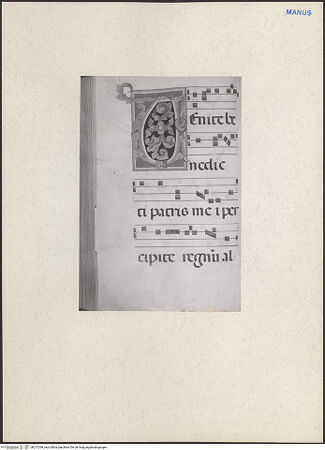 MANUS
Venite be
nedic
ti patris mei per
cipite regnū al